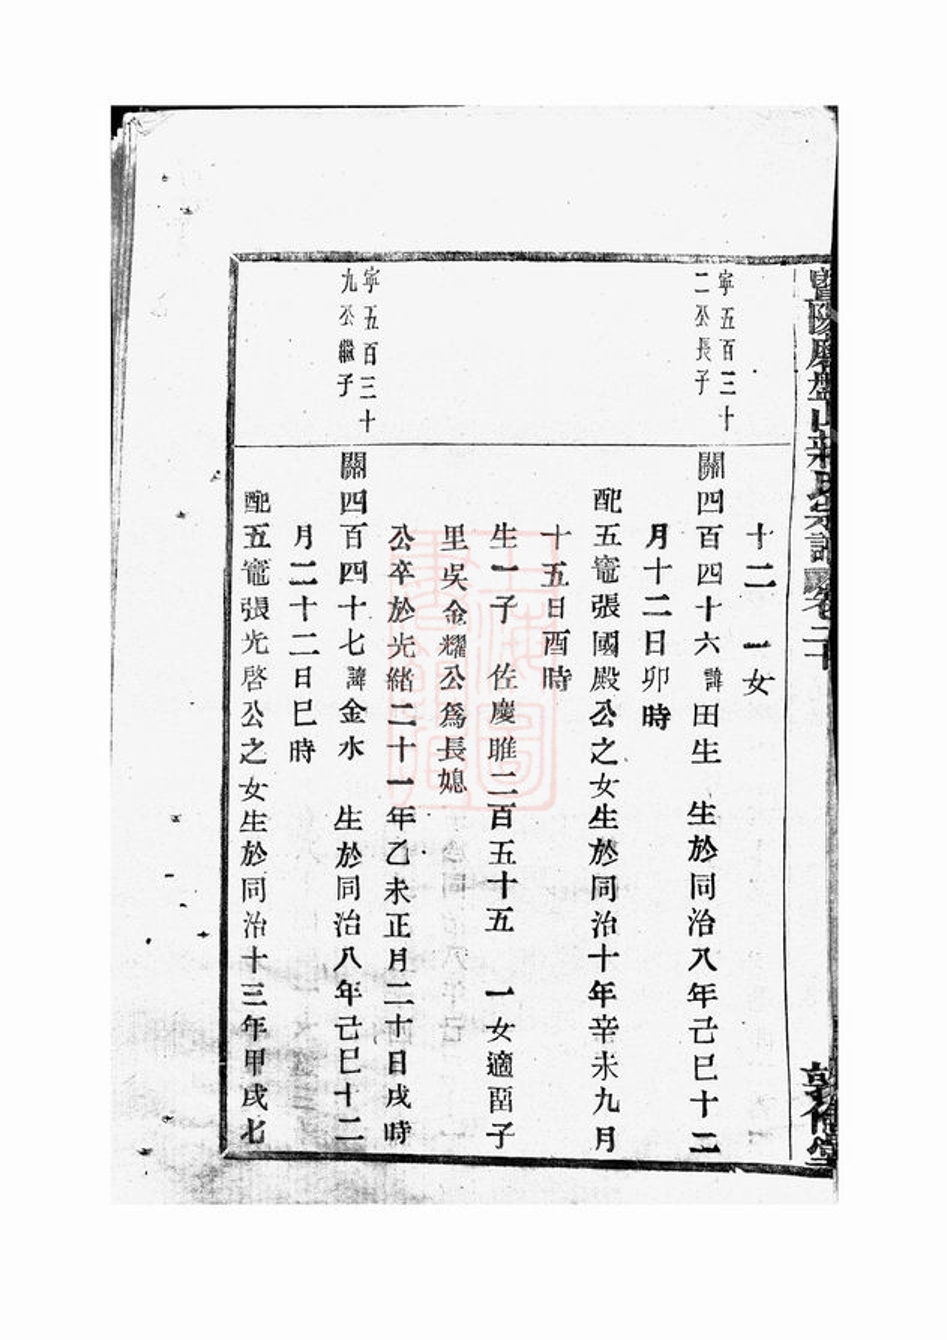 暨陽磨盤山新氏宗譜 卷二十
敦倫堂
十二 一女
寧五百三十
二公長子
關四百四十六諱田生 生於同治八年己巳十二
月十二日卯時
配五竈張國殿公之女生於同治十年辛未九月
十五日酉時
生一子 佐慶睢二百五十五 一女適啚子
里吳金耀公爲長媳
公卒於光緒二十一年乙未正月二十日戌時
寧五百三十
九公繼子
關四百四十七諱金水 生於同治八年己巳十二
月二十二日巳時
配五竈張光啓公之女生於同治十三年甲戌七
上海圖書館藏